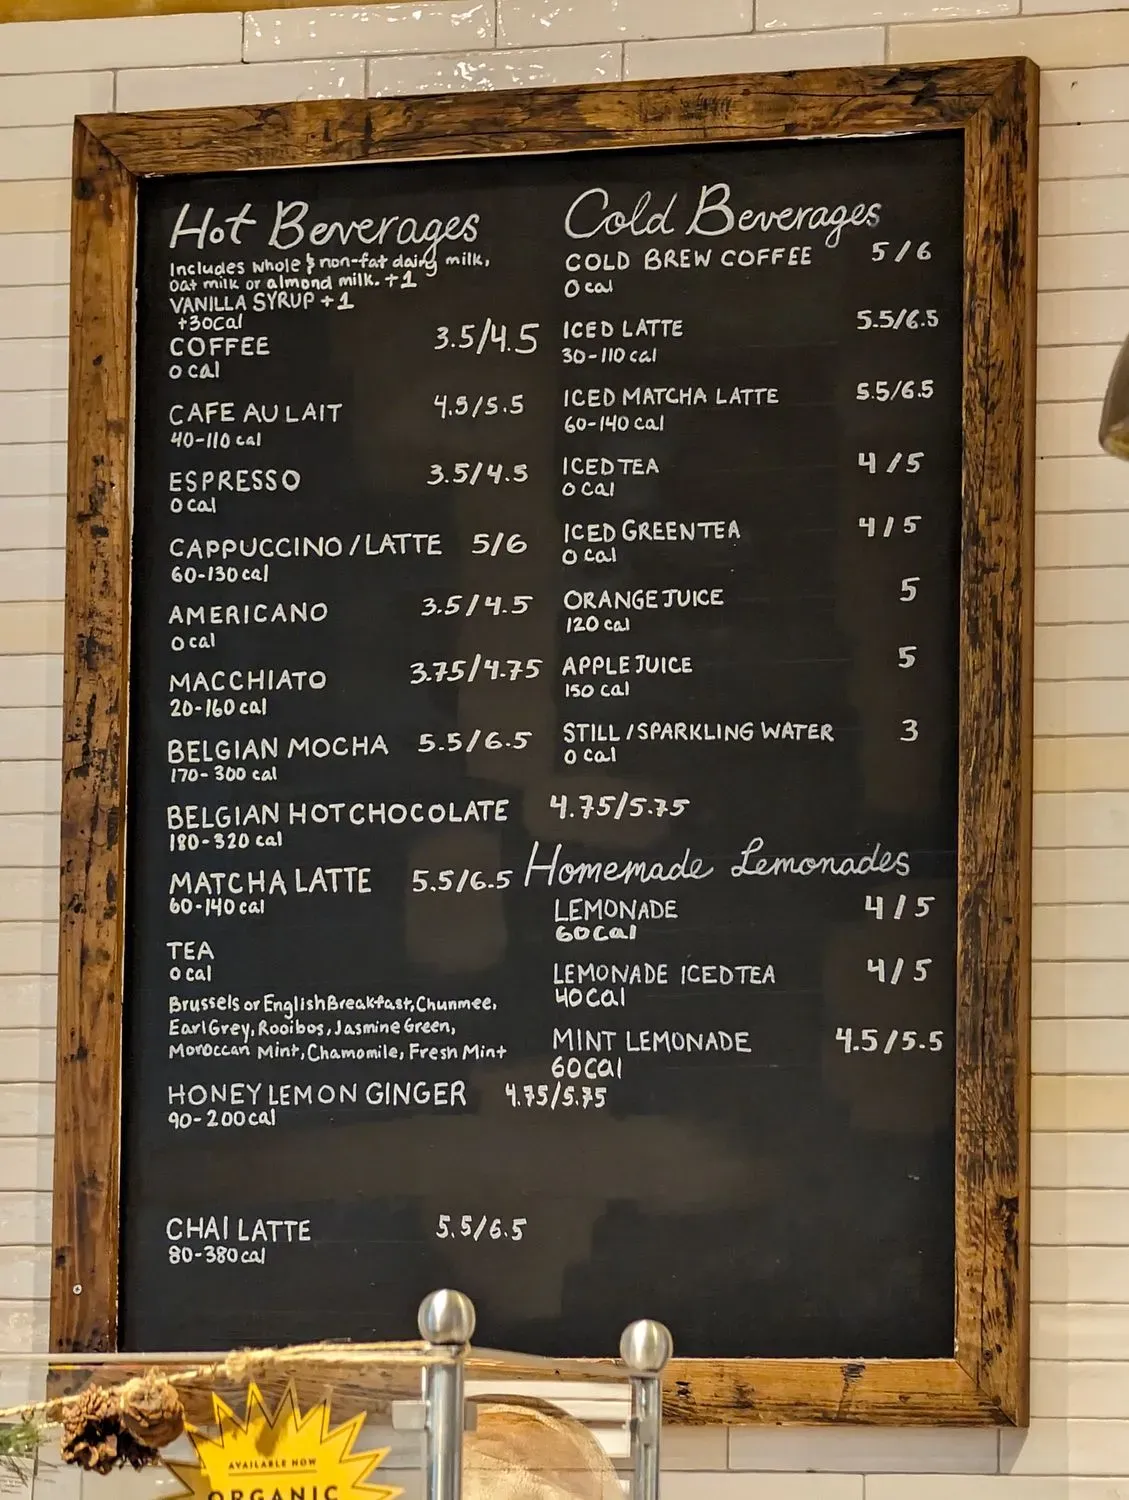 Hot Beverages
Includes whole & non-fat dairy milk,
oat milk or almond milk. +1
VANILLA SYRUP +1
+30cal
COFFEE 3.5/4.5
0 cal
CAFE AU LAIT 4.5/5.5
40-110 cal
ESPRESSO 3.5/4.5
0 cal
CAPPUCCINO/LATTE 5/6
60-130 cal
AMERICANO 3.5/4.5
0 cal
MACCHIATO 3.75/4.75
20-160 cal
BELGIAN MOCHA 5.5/6.5
170-300 cal
BELGIAN HOT CHOCOLATE 4.75/5.75
180-320 cal
MATCHA LATTE 5.5/6.5
60-140 cal
TEA
0 cal
Brussels or English Breakfast, Chunmee,
Earl Grey, Rooibos, Jasmine Green,
Moroccan Mint, Chamomile, Fresh Mint
HONEY LEMON GINGER 4.75/5.75
90-200 cal
CHAI LATTE 5.5/6.5
80-380 cal
Cold Beverages
COLD BREW COFFEE 5/6
0 cal
ICED LATTE 5.5/6.5
30-110 cal
ICED MATCHA LATTE 5.5/6.5
60-140 cal
ICED TEA 4/5
0 cal
ICED GREEN TEA 4/5
0 cal
ORANGE JUICE 5
120 cal
APPLE JUICE 5
150 cal
STILL/SPARKLING WATER 3
0 cal
Homemade Lemonades
LEMONADE 4/5
60 cal
LEMONADE ICED TEA 4/5
40 cal
MINT LEMONADE 4.5/5.5
60 cal
AVAILABLE NOW
ORGANIC